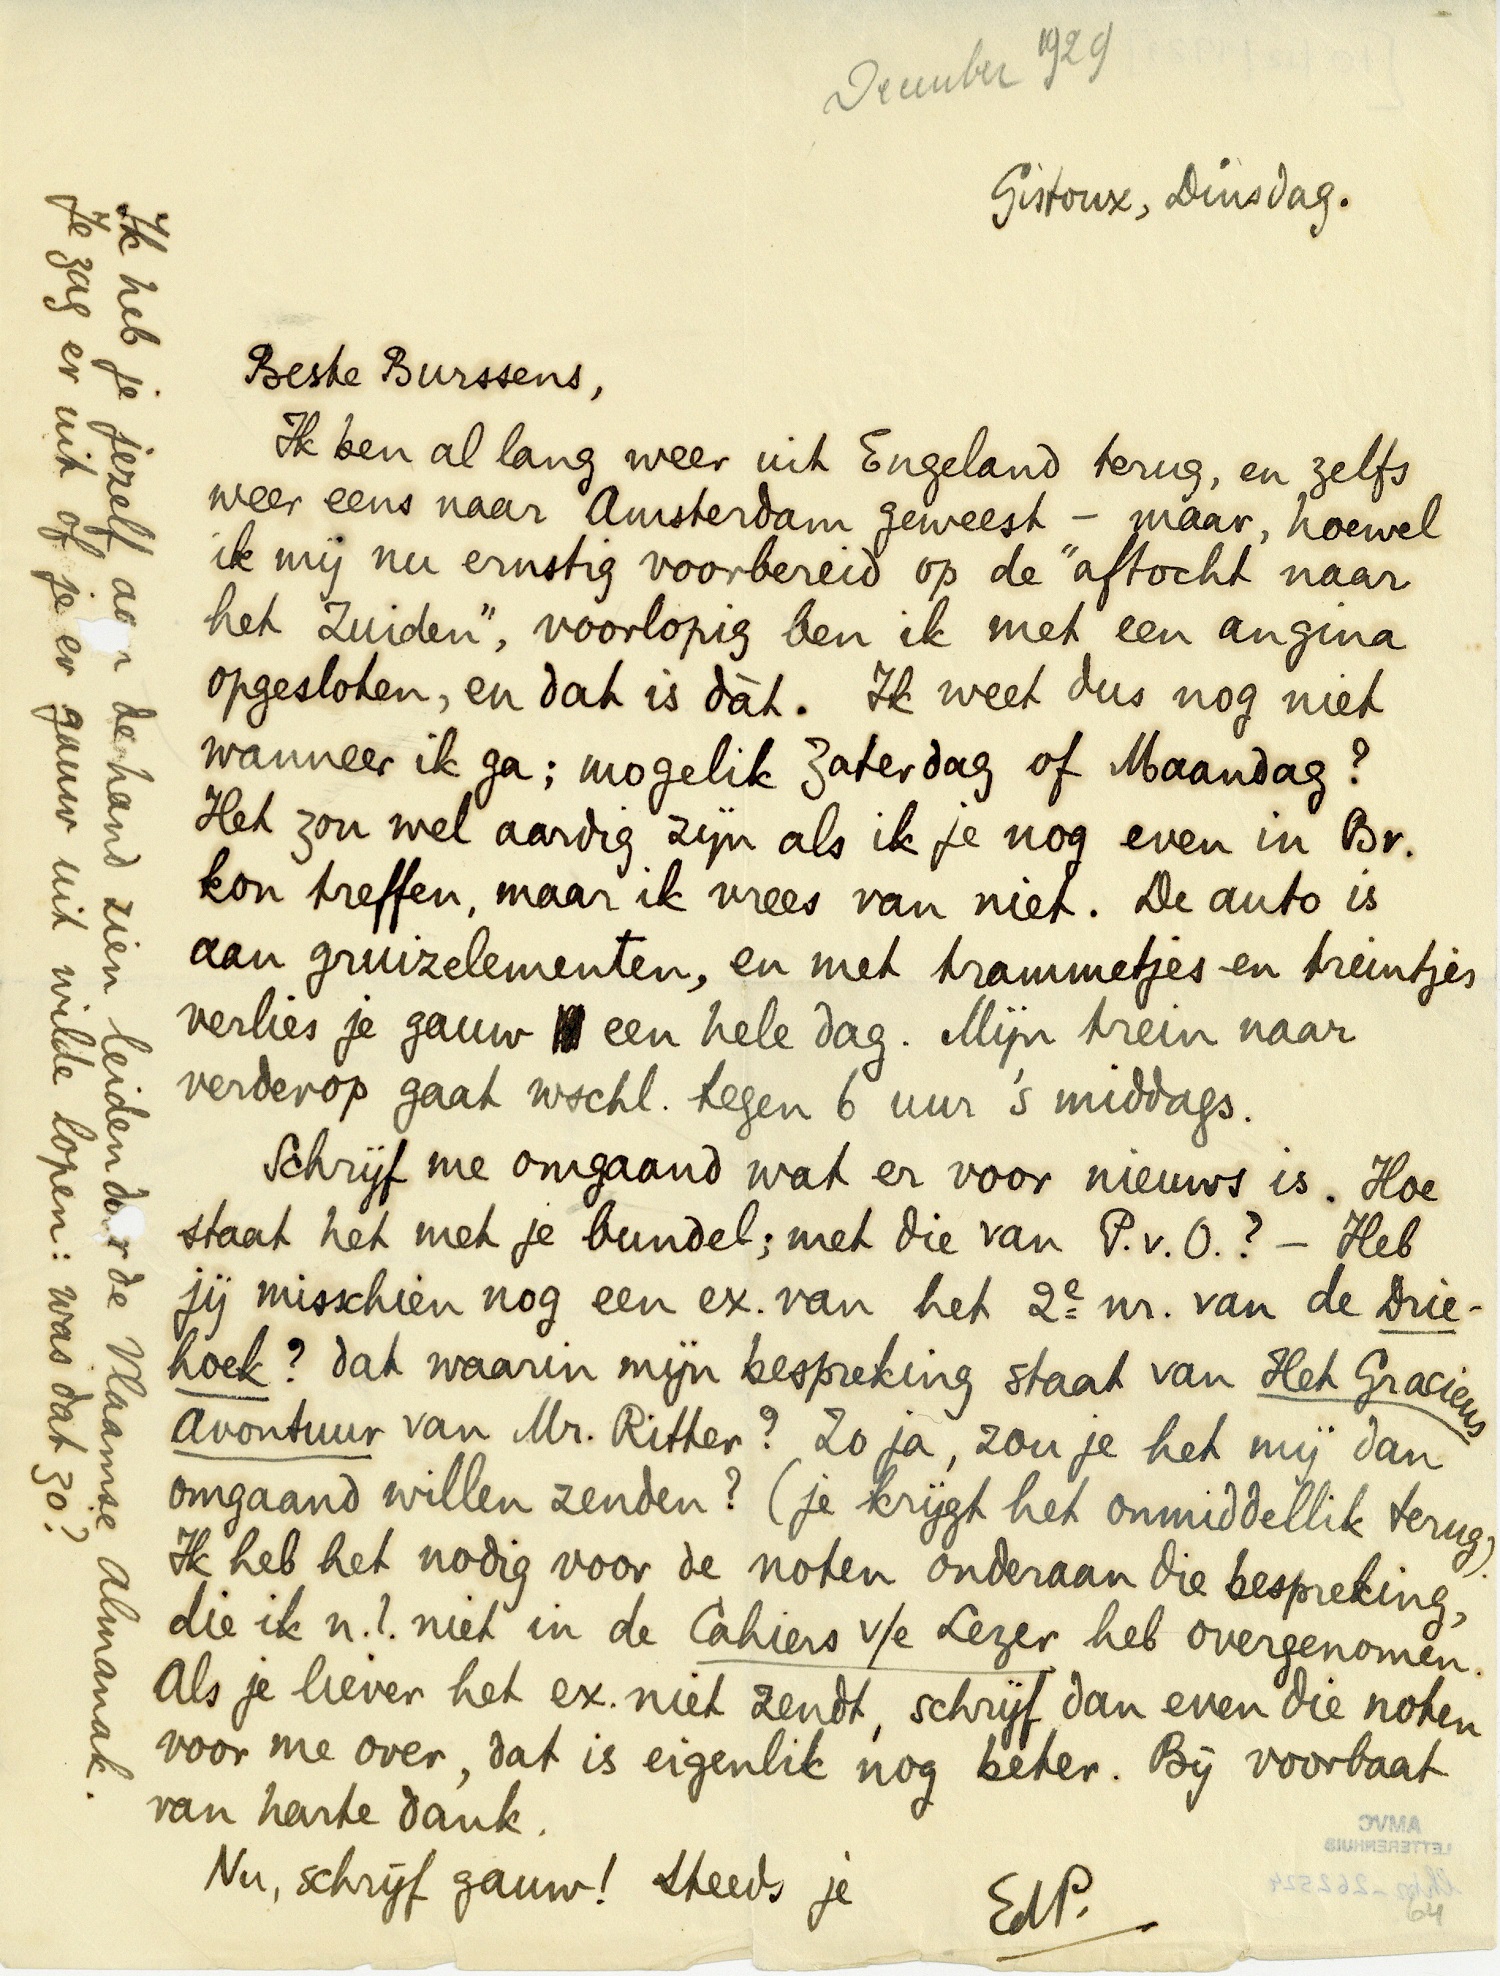 December 1929
Gistoux, Dinsdag.
Beste Burssens,
Ik ben al lang weer uit Engeland terug, en zelfs
weer eens naar Amsterdam geweest – maar, hoewel
ik mij nu ernstig voorbereid op de "aftocht naar
het Zuiden", voorlopig ben ik met een angina
opgesloten, en dat is dàt. Ik weet dus nog niet
wanneer ik ga; mogelik Zaterdag of Maandag?
Het zou wel aardig zijn als ik je nog even in Br.
kon treffen, maar ik vrees van niet. De auto is
aan gruizelementen, en met trammetjes en treintjes
verlies je gauw een hele dag. Mijn trein naar
verderop gaat wschl. tegen 6 uur 's middags.
Schrijf me omgaand wat er voor nieuws is. Hoe
staat het met je bundel; met die van P.v.O.? – Heb
jij misschien nog een ex. van het 2e nr. van de Drie-
hoek? dat waarin mijn bespreking staat van Het Gracieus
Avontuur van Mr. Ritter? Zo ja, zou je het mij dan
omgaand willen zenden? (je krijgt het onmiddellik terug).
Ik heb het nodig voor de noten onderaan die bespreking,
die ik n.l. niet in de Cahiers v/e Lezer heb overgenomen.
Als je liever het ex. niet zendt, schrijf dan even die noten
voor me over, dat is eigenlik nog beter. Bij voorbaat
van harte dank.
Nu, schrijf gauw! Steeds je
EdP.
Ik heb je jezelf aan de hand zien leiden door de Vlaamse Almanak.
Je zag er uit of je er gauw uit wilde lopen: was dat zo?
AMVC
LETTERENHUIS
262524
64